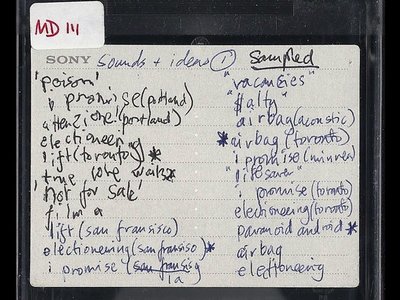 MD 111
SONY sounds + ideas ①
'poison'
i promise (portland)
attention! (portland)
electioneering
lift (toronto) *
true love waits *
'not for sale'
if i'm a
lift (san fransisco)
electioneering (san fransisco) *
i promise (san fransis la
sampled
"vacancies"
"salty"
airbag (acoustic)
* airbag (toronto)
i promise (minnea)
"lifesaver"
i promise (toronto)
electioneering (toronto)
paranoid android *
airbag
electioneering